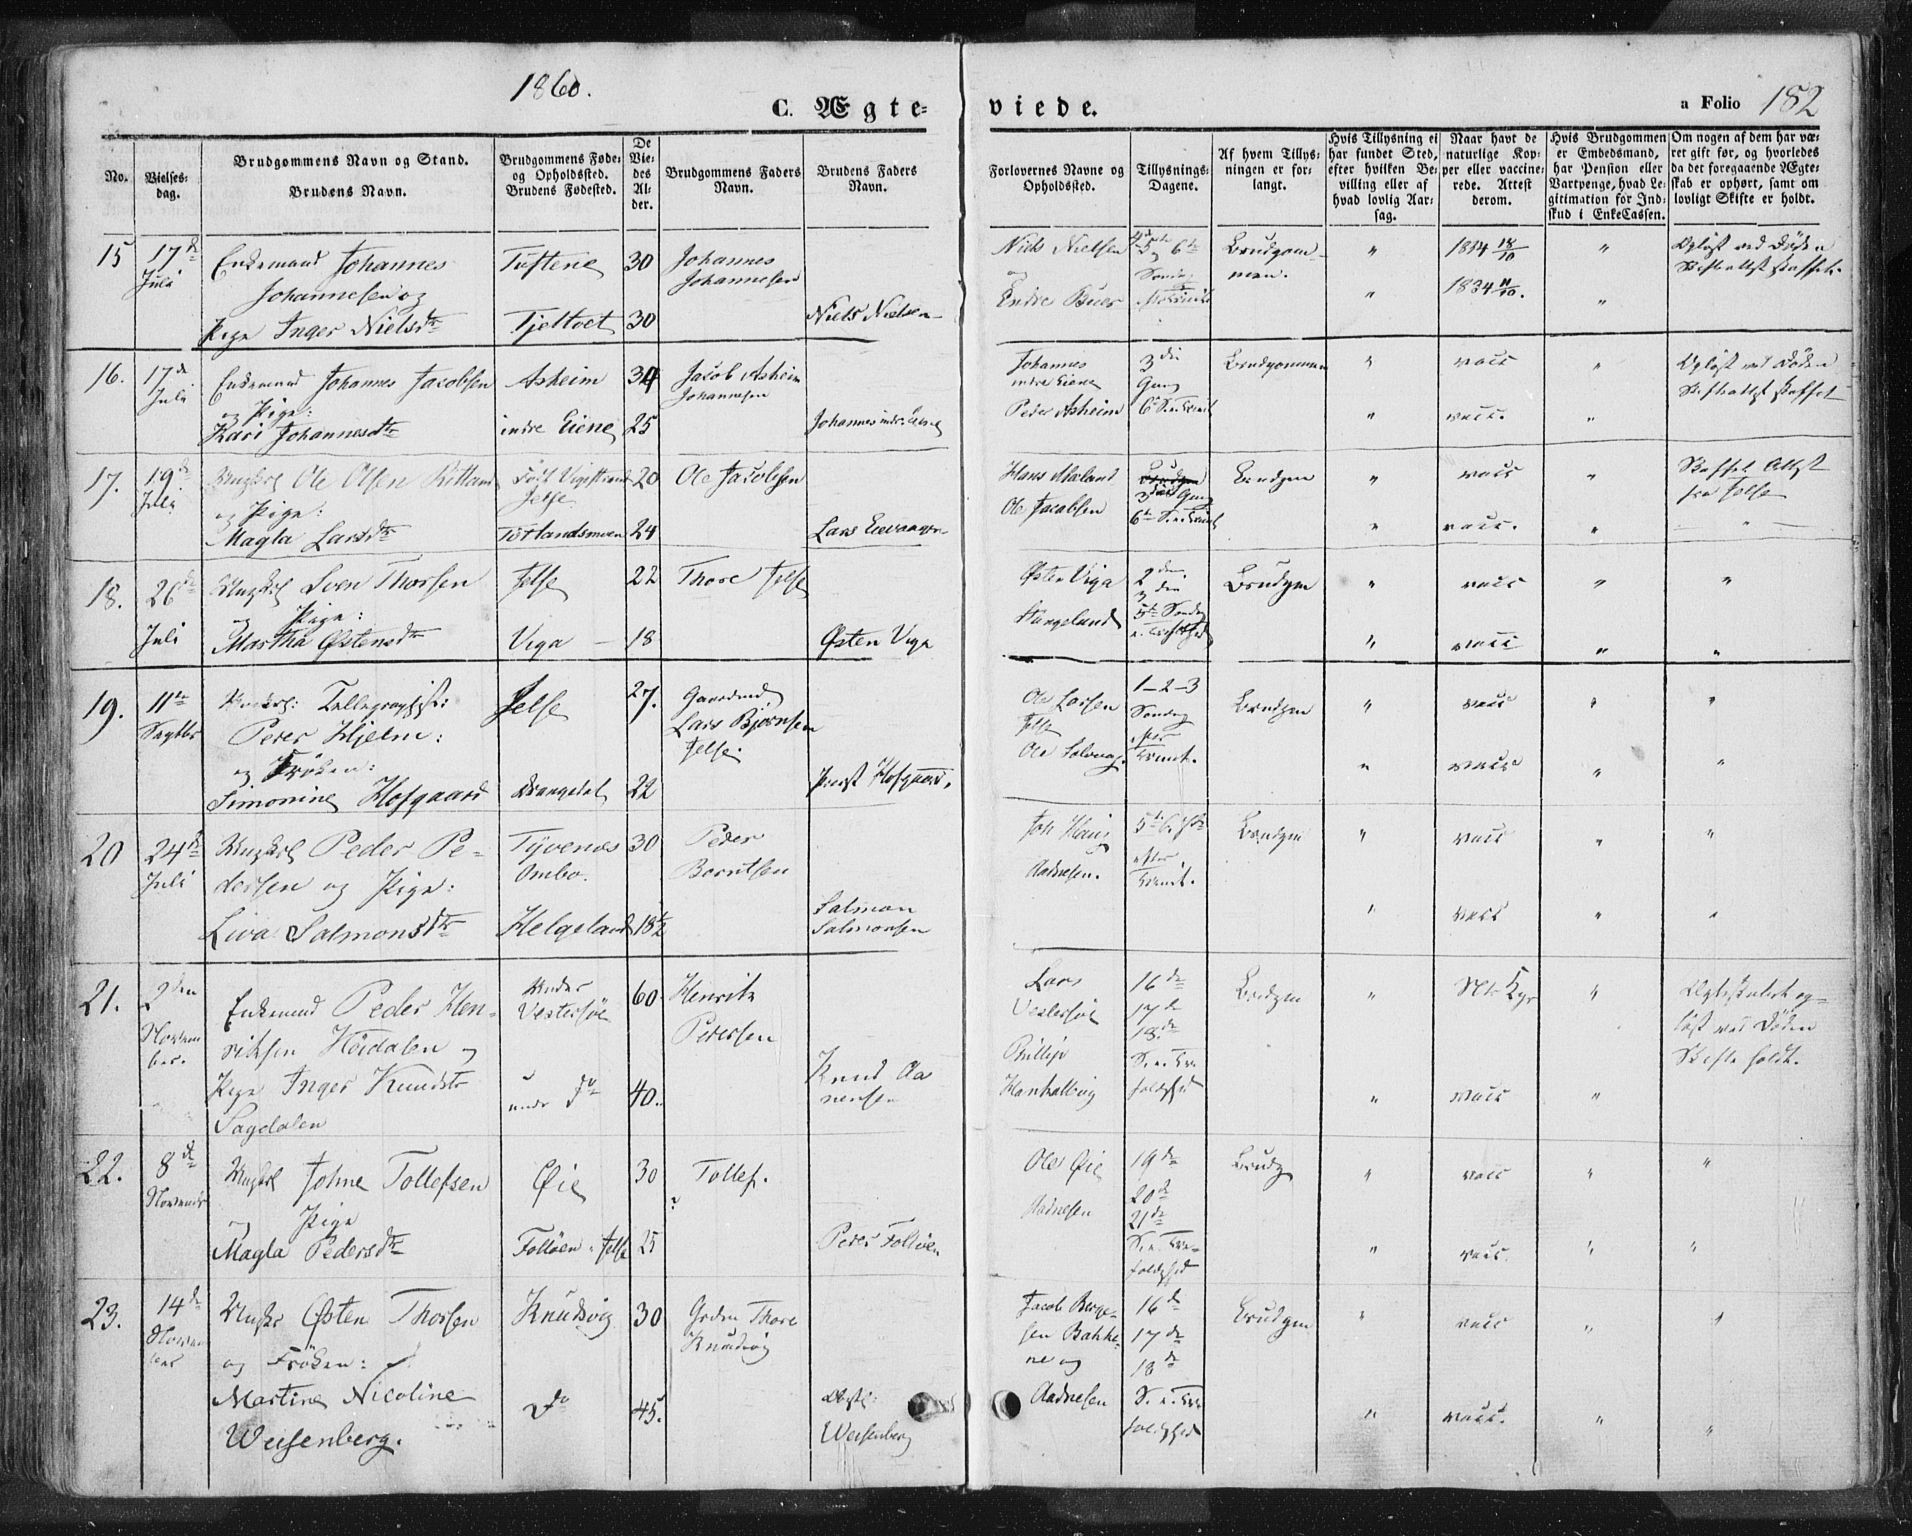 1860.
C. Ægte-
viede.
a Folio 182
No.
Vielses-
dag.
Brudgommens Navn og Stand.
Brudens Navn.
Brudgommens Føde-
og Opholdssted.
Brudens Fødested.
De
Vie-
des
Al-
der.
Brudgommens Faders
Navn.
Brudens Faders
Navn.
Forlovernes Navne og
Opholdssted.
Tillysnings-
Dagene.
Af hvem Tillys-
ningen er for-
langt.
Hvis Tillysning ei
har fundet Sted,
efter hvilken Be-
villing eller af
hvad lovlig Aar-
sag.
Naar havt de
naturlige Kop-
per eller vaccine-
rede. Attest
derom.
Hvis Brudgommen
er Embedsmand,
har Pension eller
Vartpenge, hvad Le-
gitimation for Ind-
skud i EnkeCassen.
Om nogen af dem har væ-
ret gift før, og hvorledes
da det foregaaende Ægte-
skab er ophørt, samt om
lovligt Skifte er holdt.
15 17de Juli
Enkemand Johannes
Johannesen og
Pige Inger Nielsdtr
Tuftene 30
Tjeltvet 30
Johannes
Johannesen
Niels Nielsen
Niels Nielsen
og
Endre Buer
6te
Søndag
Brudgom-
men.
" 1834 18/10 "
" 1834 11/10. "
Opløst ved Døden
Skifteattest skaffet.
16. 17de Juli
Enkemand Johannes Jacobsen
og Pige:
Kari Johannesdtr
Asheim 34
indre Eiene 25
Jacob Asheim
Johannesen
Johannes indre Eiene
Johannes
indre Eiene
Peder Asheim
3die
Gang
6 S. e. Trinit
Brudgommen
" vacc "
" vacc. "
Opløst ved Døden
Skifteattest skaffet
17. 19de Juli
Ungkarl Ole Olsen
og Pige:
Magla Larsdtr
Jelse 20
Totlandsmoen 24
Ole Jacobsen
Lars
Hans
Ole Jacobsen
3die Gang
6te S. e. Trinit
Brudgm
" vacc "
" vacc. "
Skaffet Attest
fra Jelse
18. 26de Juli
Ungkarl Sven Thorsen
og Pige:
Martha Østensdtr
Jelse 22
Viga 18
Thore Jelse
Østen Viga
Østen Viga
Stangeland
2den
3die
5te Søndag
Brudgm
" vacc " "
" vacc " "
19. 11te Septbr
Ungkarl: Tellegraphist:
Peder Hjelm:
og Frøken:
Simonine Hofgaard
Jelse 27.
Drangedal 22
Gaardmd
Lars Bjørnsen
Jelse.
Præst Hofgaard.
Ole Larsen
Jelse
Ole
1-2-3
Søndag
efter
Trinit.
Brudgm
" vacc " "
" vacc " "
20 24de Juli
Ungkarl Peder Pe-
dersen og Pige:
Liva Salmonsdtr
Tyvenæs
Ombo. 30
Helgeland 18½
Peder
Berntsen
Salmon
Salmonsen
Joh Haug
Aadnesen.
5te 6te 7de
efter
Trinit.
Brudgm
" vacc " "
" vacc " "
21. 2den Novem
ber.
Enkemand Peder Hen-
riksen Høidalen og
Pige Inger Knudsdtr
Sagdalen
Under
Vestersøe 60
under do 40.
Henrik
Pedersen
Knud Aa
nensen
Lars
Vestersøe
Phillip
Hanhallvig
16de
17de
18de
S. e. Tre-
foldighed
Brudgm
" "
" vacc "
løst ved Døden
Skifte holdt.
22. 8de Novembr
Ungkarl Johne Tollefsen
og Pige
Magla Pedersdtr
Øie 30
Foltøen i Jelse 25
Tollef.
?
Peder Foltøen
Ole Øie
Aadnesen
19de
20de
21de
S. e. Tre-
foldighed
Brudg
" vacc " "
" vacc. " "
23. 14de Novem
ber
Ungkr Østen Thorsen
og Frøken:
Martine Nicoline
Weisenberg.
Knudsvig 30
Do 45.
Grdm Thore
Knudsvig
Weisenberg
Jacob Berge-
sen Bakke-
ne og
Aadnesen
16de
17de
18de
S. e. Tre-
foldighed
Brudgm
" vacc " "
" vacc. " "